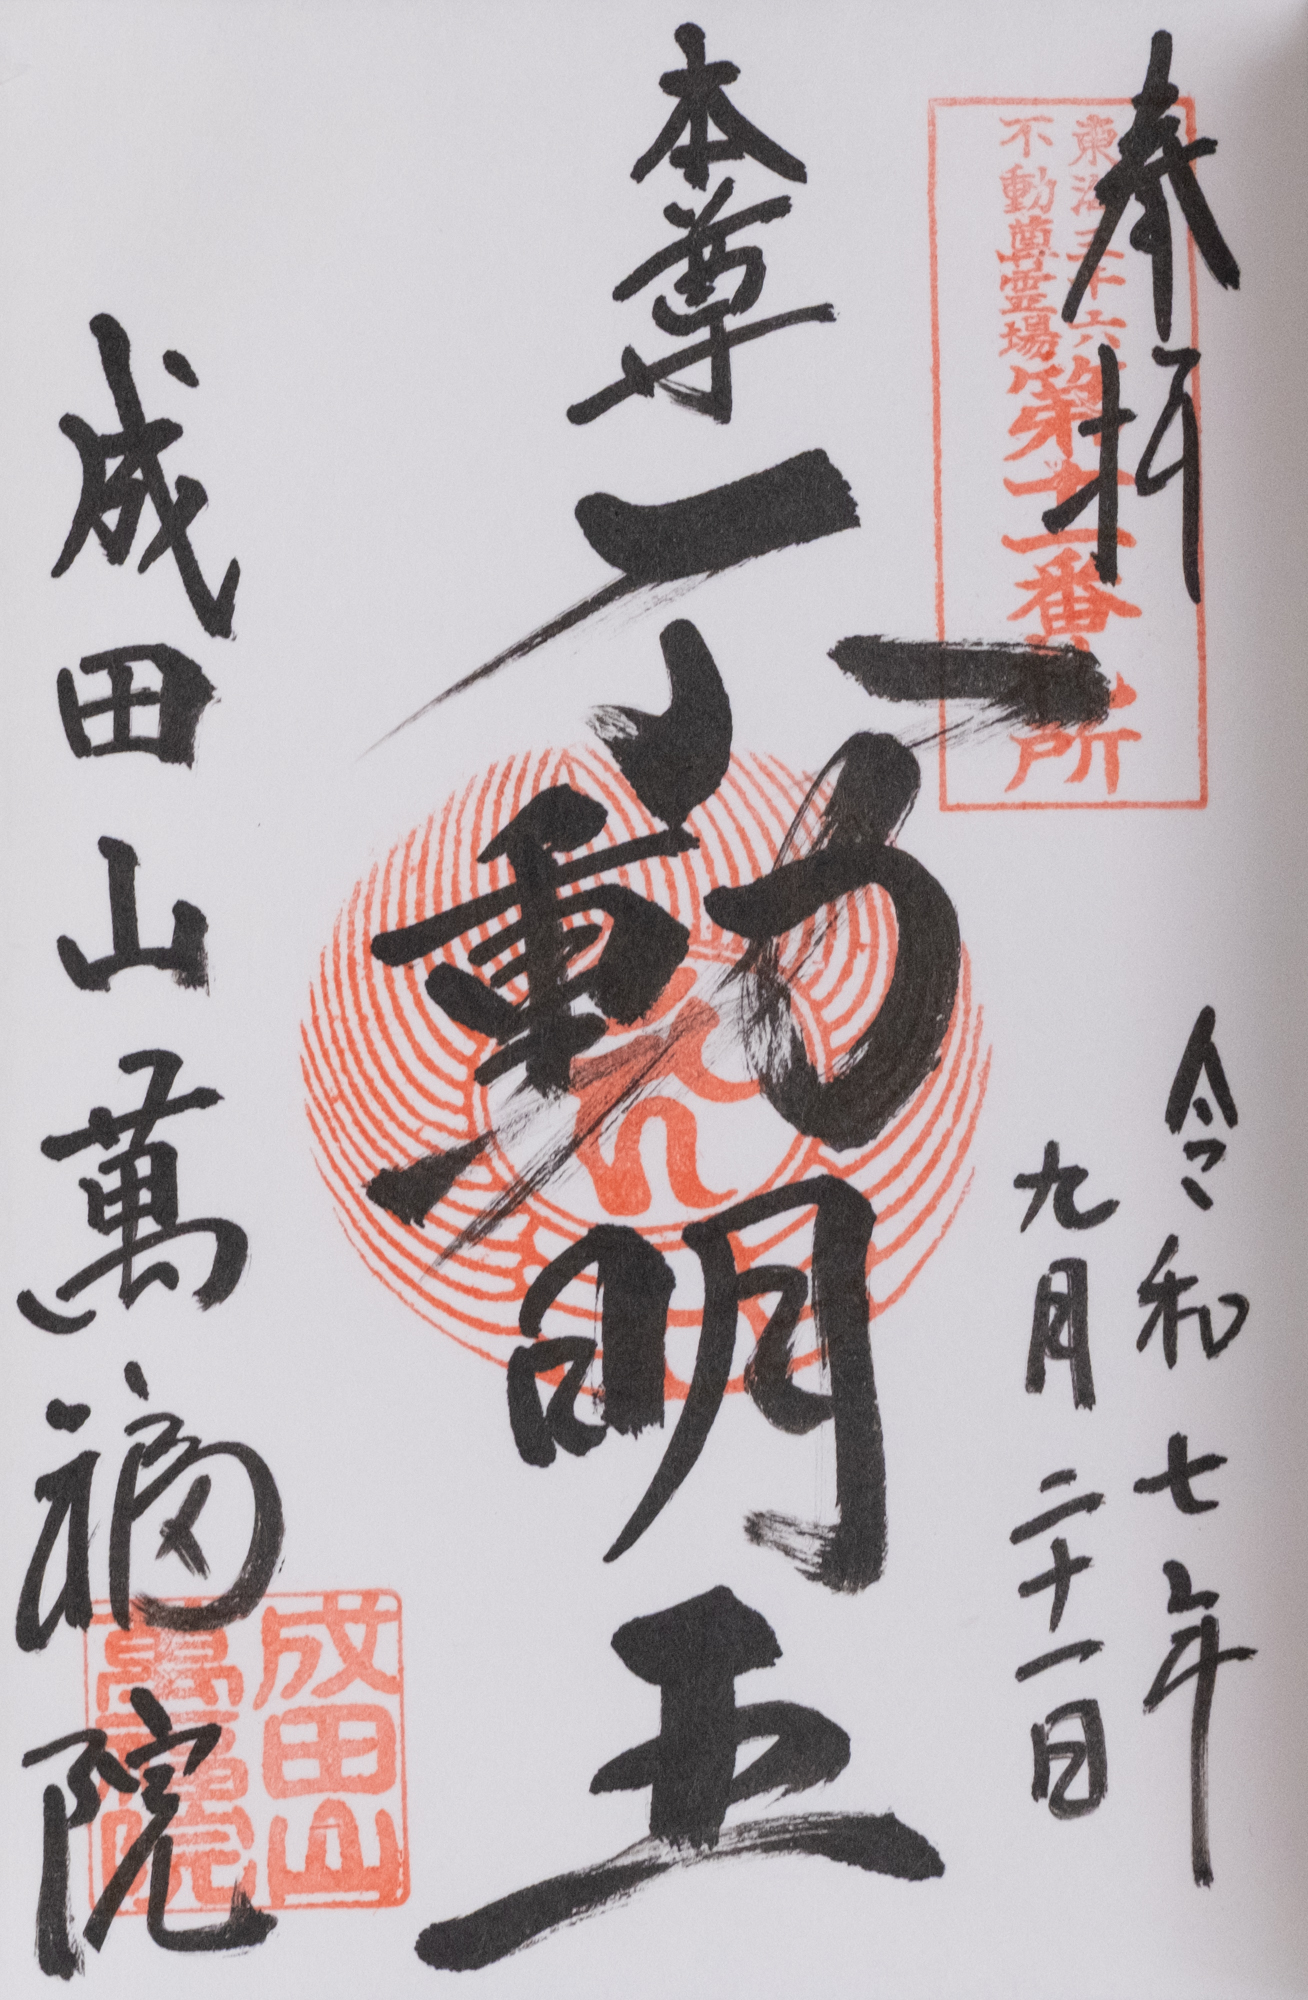 奉拝
東海三十六
不動尊霊場
第十一番札所
令和七年
九月二十一日
本尊
不動明王
成田山萬福院
成田山
萬福院